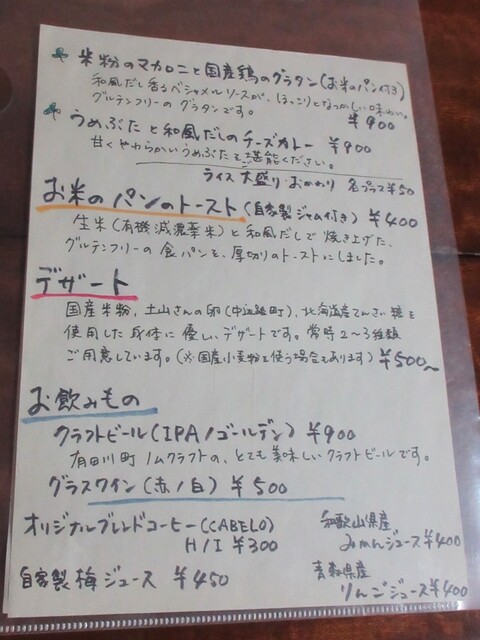 米粉のマカロニと国産鶏のグラタン(お米のパン付き)
和風だし香るベシャメルソースが、ほっこりとなつかしい味わい。
グルテンフリーのグラタンです。 ¥900
うめぶたと和風だしのチーズカレー ¥900
甘くやわらかいうめぶたをご堪能ください。
ライス大盛り・おかわり 各プラス¥50
お米のパンのトースト(自家製ジャム付き) ¥400
生米(有機減農薬米)と和風だしで焼き上げた、
グルテンフリーの食パンを、厚切りのトーストにしました。
デザート
国産米粉、土山さんの卵(中辺路町)、北海道産てんさい糖を
使用した身体に優しいデザートです。常時2〜3種類
ご用意しています。(※国産小麦粉を使う場合もあります) ¥500〜
お飲みもの
クラフトビール(IPA/ゴールデン) ¥900
有田川町ノムクラフトの、とても美味しいクラフトビールです。
グラスワイン(赤/白) ¥500
オリジナルブレンドコーヒー(CABELO)
H/I ¥300
和歌山県産
みかんジュース ¥400
自家製梅ジュース ¥450
青森県産
りんごジュース ¥400